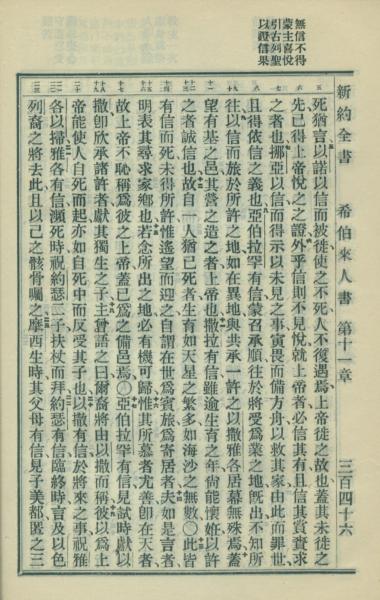 無信不得
蒙主喜悅
引古列聖
以證信果
新約全書 希伯來人書 第十一章 三百四十六
死猶言以諾以信而被徙使之不死人不復遇焉上帝徙之故也蓋其未徙之
先已得上帝悅之之證外乎信則不見悅就上帝者必信其有且信其賞賚求
之者也挪亞以信而得示以未見之事寅畏而備方舟以救其家由此而罪世
且得依信之義也亞伯拉罕有信蒙召承順往於將受爲業之地旣出不知所
往以信而旅於所許之地如在異地與共承一許之以撒雅各居幕無殊焉蓋
望有基之邑其營之造之者上帝也撒拉有信雖逾生育之年尙能懷姙以許
之者誠信也故自一人猶已死者生育如天星之繁多如海沙之無數〇此皆
有信而死未得所許惟遙望而迎之自謂在世爲賓旅爲寄居者夫如是言者
明表其尋求家鄕也若念所出之地必有機可歸惟其所慕者尤善卽在天者
故上帝不恥稱爲彼之上帝蓋已爲之備邑焉〇亞伯拉罕有信見試時獻以
撒卽欣承諸許者獻其獨生之子主曾語之曰爾裔將由以撒而稱彼以爲上
帝能使人自死而起亦如自死中而反受其子也以撒有信於將來之事祝雅
各以掃雅各有信瀕死時祝約瑟二子扶杖而拜約瑟有信臨終時言及以色
列裔之將去此且以己之骸骨囑之摩西生時其父母有信見子美都匿之三